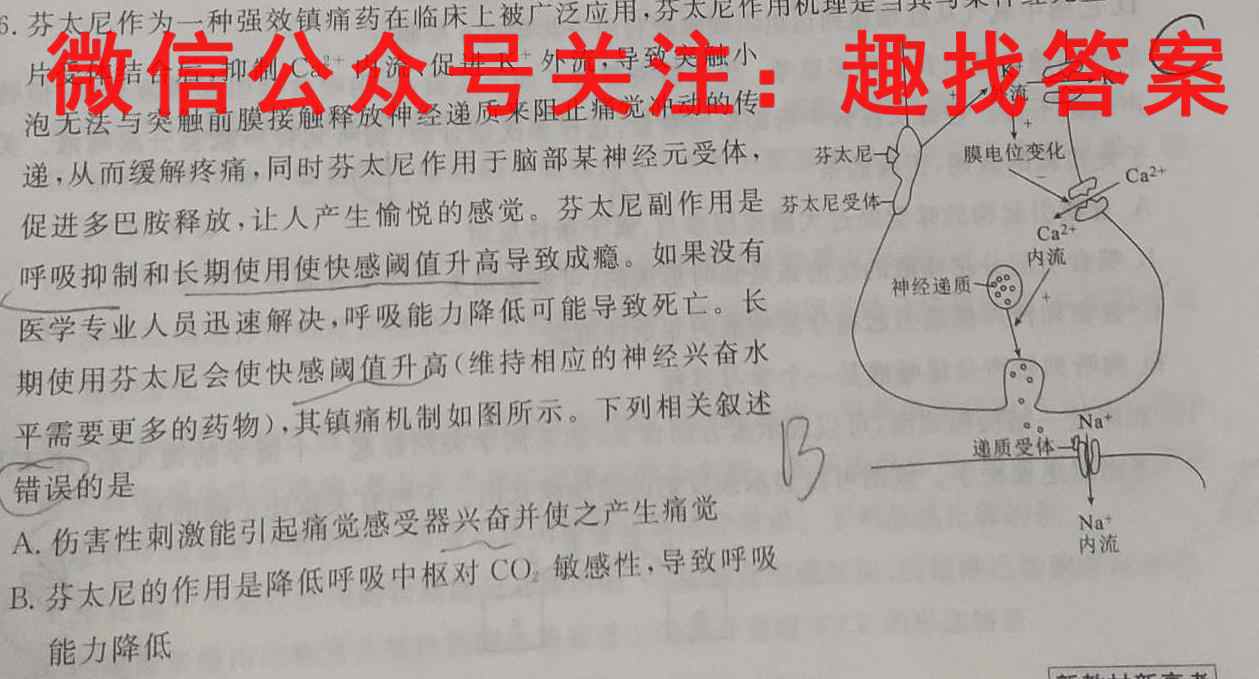 6. 芬太尼作为一种强效镇痛药在临床上被广泛应用,芬太尼作用机理是当其与某神经元
微信公众号关注：趣找答案
片受体结合后,抑制 Ca²⁺ 内流,促进 K⁺ 外流,导致突触小
泡无法与突触前膜接触释放神经递质来阻止痛觉冲动的传
递,从而缓解疼痛,同时芬太尼作用于脑部某神经元受体,
促进多巴胺释放,让人产生愉悦的感觉。芬太尼副作用是
呼吸抑制和长期使用使快感阈值升高导致成瘾。如果没有
医学专业人员迅速解决,呼吸能力降低可能导致死亡。长
期使用芬太尼会使快感阈值升高(维持相应的神经兴奋水
平需要更多的药物),其镇痛机制如图所示。下列相关叙述
错误的是
A. 伤害性刺激能引起痛觉感受器兴奋并使之产生痛觉
B. 芬太尼的作用是降低呼吸中枢对 CO₂ 敏感性,导致呼吸
能力降低
B
K⁺
流
+
芬太尼
膜电位变化
Ca²⁺
芬太尼受体
Ca²⁺
内流
神经递质
+
Na⁺
递质受体
Na⁺
内流
新教材新高考